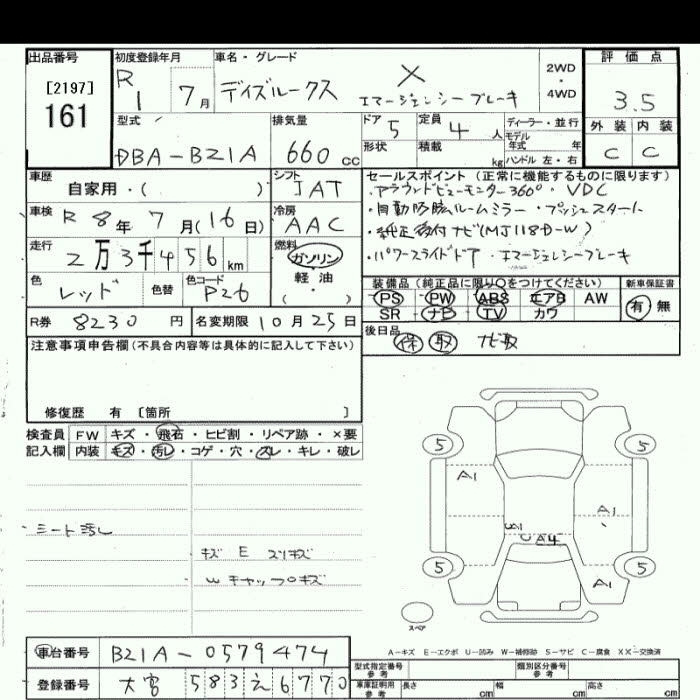 出品番号
[2197]
161
初度登録年月
R 1 7月
車名・グレード
デイズルークス X
エマージェンシーブレーキ
2WD
・
4WD
評価点
3.5
外装 内装
C C
型式
DBA-B21A
排気量
660 cc
ドア 5
定員 4 人
ディーラー・並行
モデル
年式 年
形状
積載 kg
ハンドル 左・右
車歴
自家用・( )
シフト
IAT
セールスポイント (正常に機能するものに限ります)
・アラウンドビューモニター360°・VDC
・自動防眩ルームミラー・プッシュスタート
・純正ナビ(MJ118D-W)
・パワースライドドア・エマージェンシーブレーキ
車検 R 8年 7月(16日)
冷房
AAC
走行
2万3千456km
燃料
ガソリン
軽油
( ・ )
色
レッド
色替
色コード
P26
装備品 (純正品に限り○をつけてください)
PS PW ABS エアB AW
SR ナビ TV カワ
新車保証書
有 無
R券 8230 円
名変期限 10月25日
後日品
保 取 ナビ取
注意事項申告欄(不具合内容等は具体的に記入して下さい)
修復歴 有 〔箇所 〕
検査員 FW キズ・飛石・ヒビ割・リペア跡・×要
記入欄 内装 キズ・汚レ・コゲ・穴・スレ・キレ・破レ
シート汚レ
キズ E スリキズ
W キャップキズ
5 5
A1
A1
A1
A4
5 5
A1
スペア
A-キズ E-エクボ U-凹み W-補修跡 S-サビ C-腐食 XX-交換済
車台番号 B21A-0579474
登録番号 大宮 583 え 6770
型式指定番号
参考
類別区分番号
参考
車庫証明用
参考
長さ cm 幅 cm 高さ cm